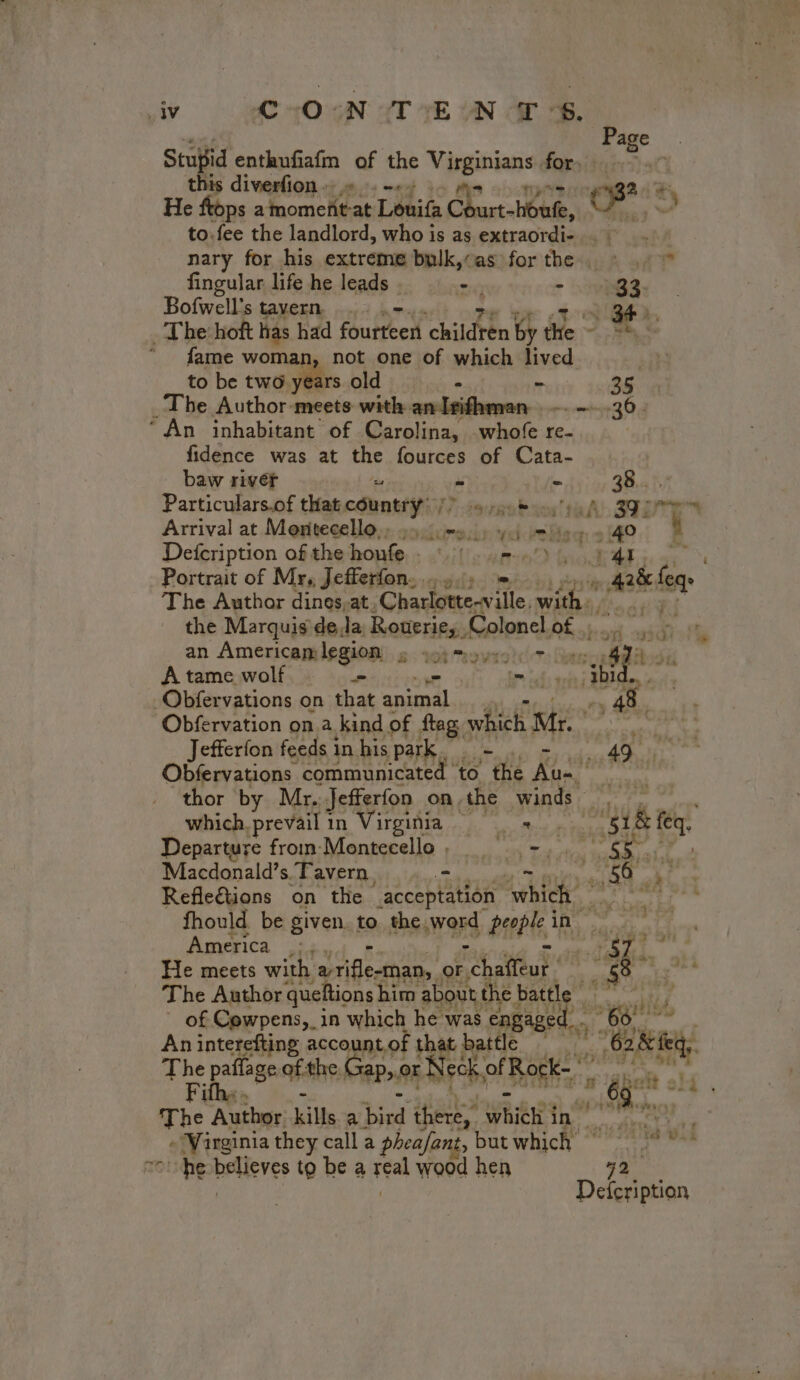 iv CONTENTS.
Page
Stupid enthuſiaſm of the Virginians for
this diverſion - - - 32
He ſtops a moment at Louiſa Court-houſe,
to ſee the landlord, who is as extraordi-
nary for his extreme bulk, as for the
ſingular life he leads - - 33
Boſwell's tavern - - - 34
The hoſt has had fourteen children by the
ſame woman, not one of which lived
to be two years old - - 35
The Author meets with an Iriſhman - - 36
An inhabitant of Carolina, whoſe re-
ſidence was at the ſources of Cata-
baw rivér - - - 38
Particulars of that country - - 39
Arrival at Montecello, - - 40
Deſcription of the houſe - - 41
Portrait of Mr. Jefferſon - - 42 & ſeq.
The Author dines at Charlotte-ville with
the Marquis de la Rouerie, Colonel of
an American legion - - 47
A tame wolf - - - ibid.
Obſervations on that animal - - 48
Obſervation on a kind of ſtag which Mr.
Jefferſon feeds in his park - - 49
Obſervations communicated to the Au-
thor by Mr. Jefferſon on the winds
which prevail in Virginia - 51 & ſeq.
Departure from Montecello - - 55
Macdonald's Tavern - - 56
Reflections on the acceptation which
ſhould be given to the word people in
America - - - 57
He meets with a rifle-man, or chaſſeur 58
The Author queſtions him about the battle
of Cowpens, in which he was engaged 60
An intereſting account of that battle 62 & ſeq.
The paſſage of the Gap, or Neck of Rock-
Fiſh - - - 69
The Author kills a bird there, which in
Virginia they call a pheaſant, but which
he believes to be a real wood hen 72
Deſcription